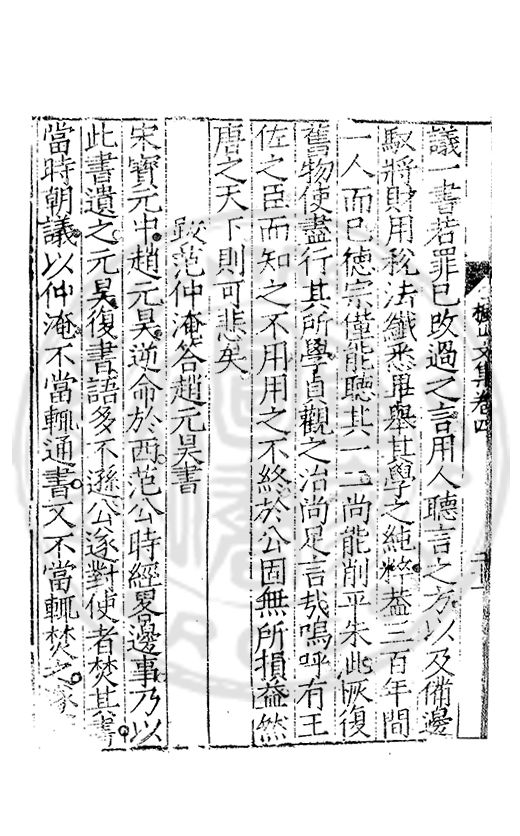 議一書若罪已改過之言用人聽言之方以及備邊
馭將財用稅法纖悉畢舉其學之純粹蓋三百年間
一人而已德宗僅能聽其一二尚能削平朱泚恢復
舊物使盡行其所學貞觀之治尚足言哉嗚呼有王
佐之臣而知之不用用之不終於公固無所損益然
唐之天下則可悲矣
跋范仲淹答趙元昊書
宋寶元中趙元昊逆命於西范公時經畧邊事乃以
此書遺之元昊復書語多不遜公遂對使者焚其書
當時朝議以仲淹不當輒通書又不當輒焚之
文集卷四